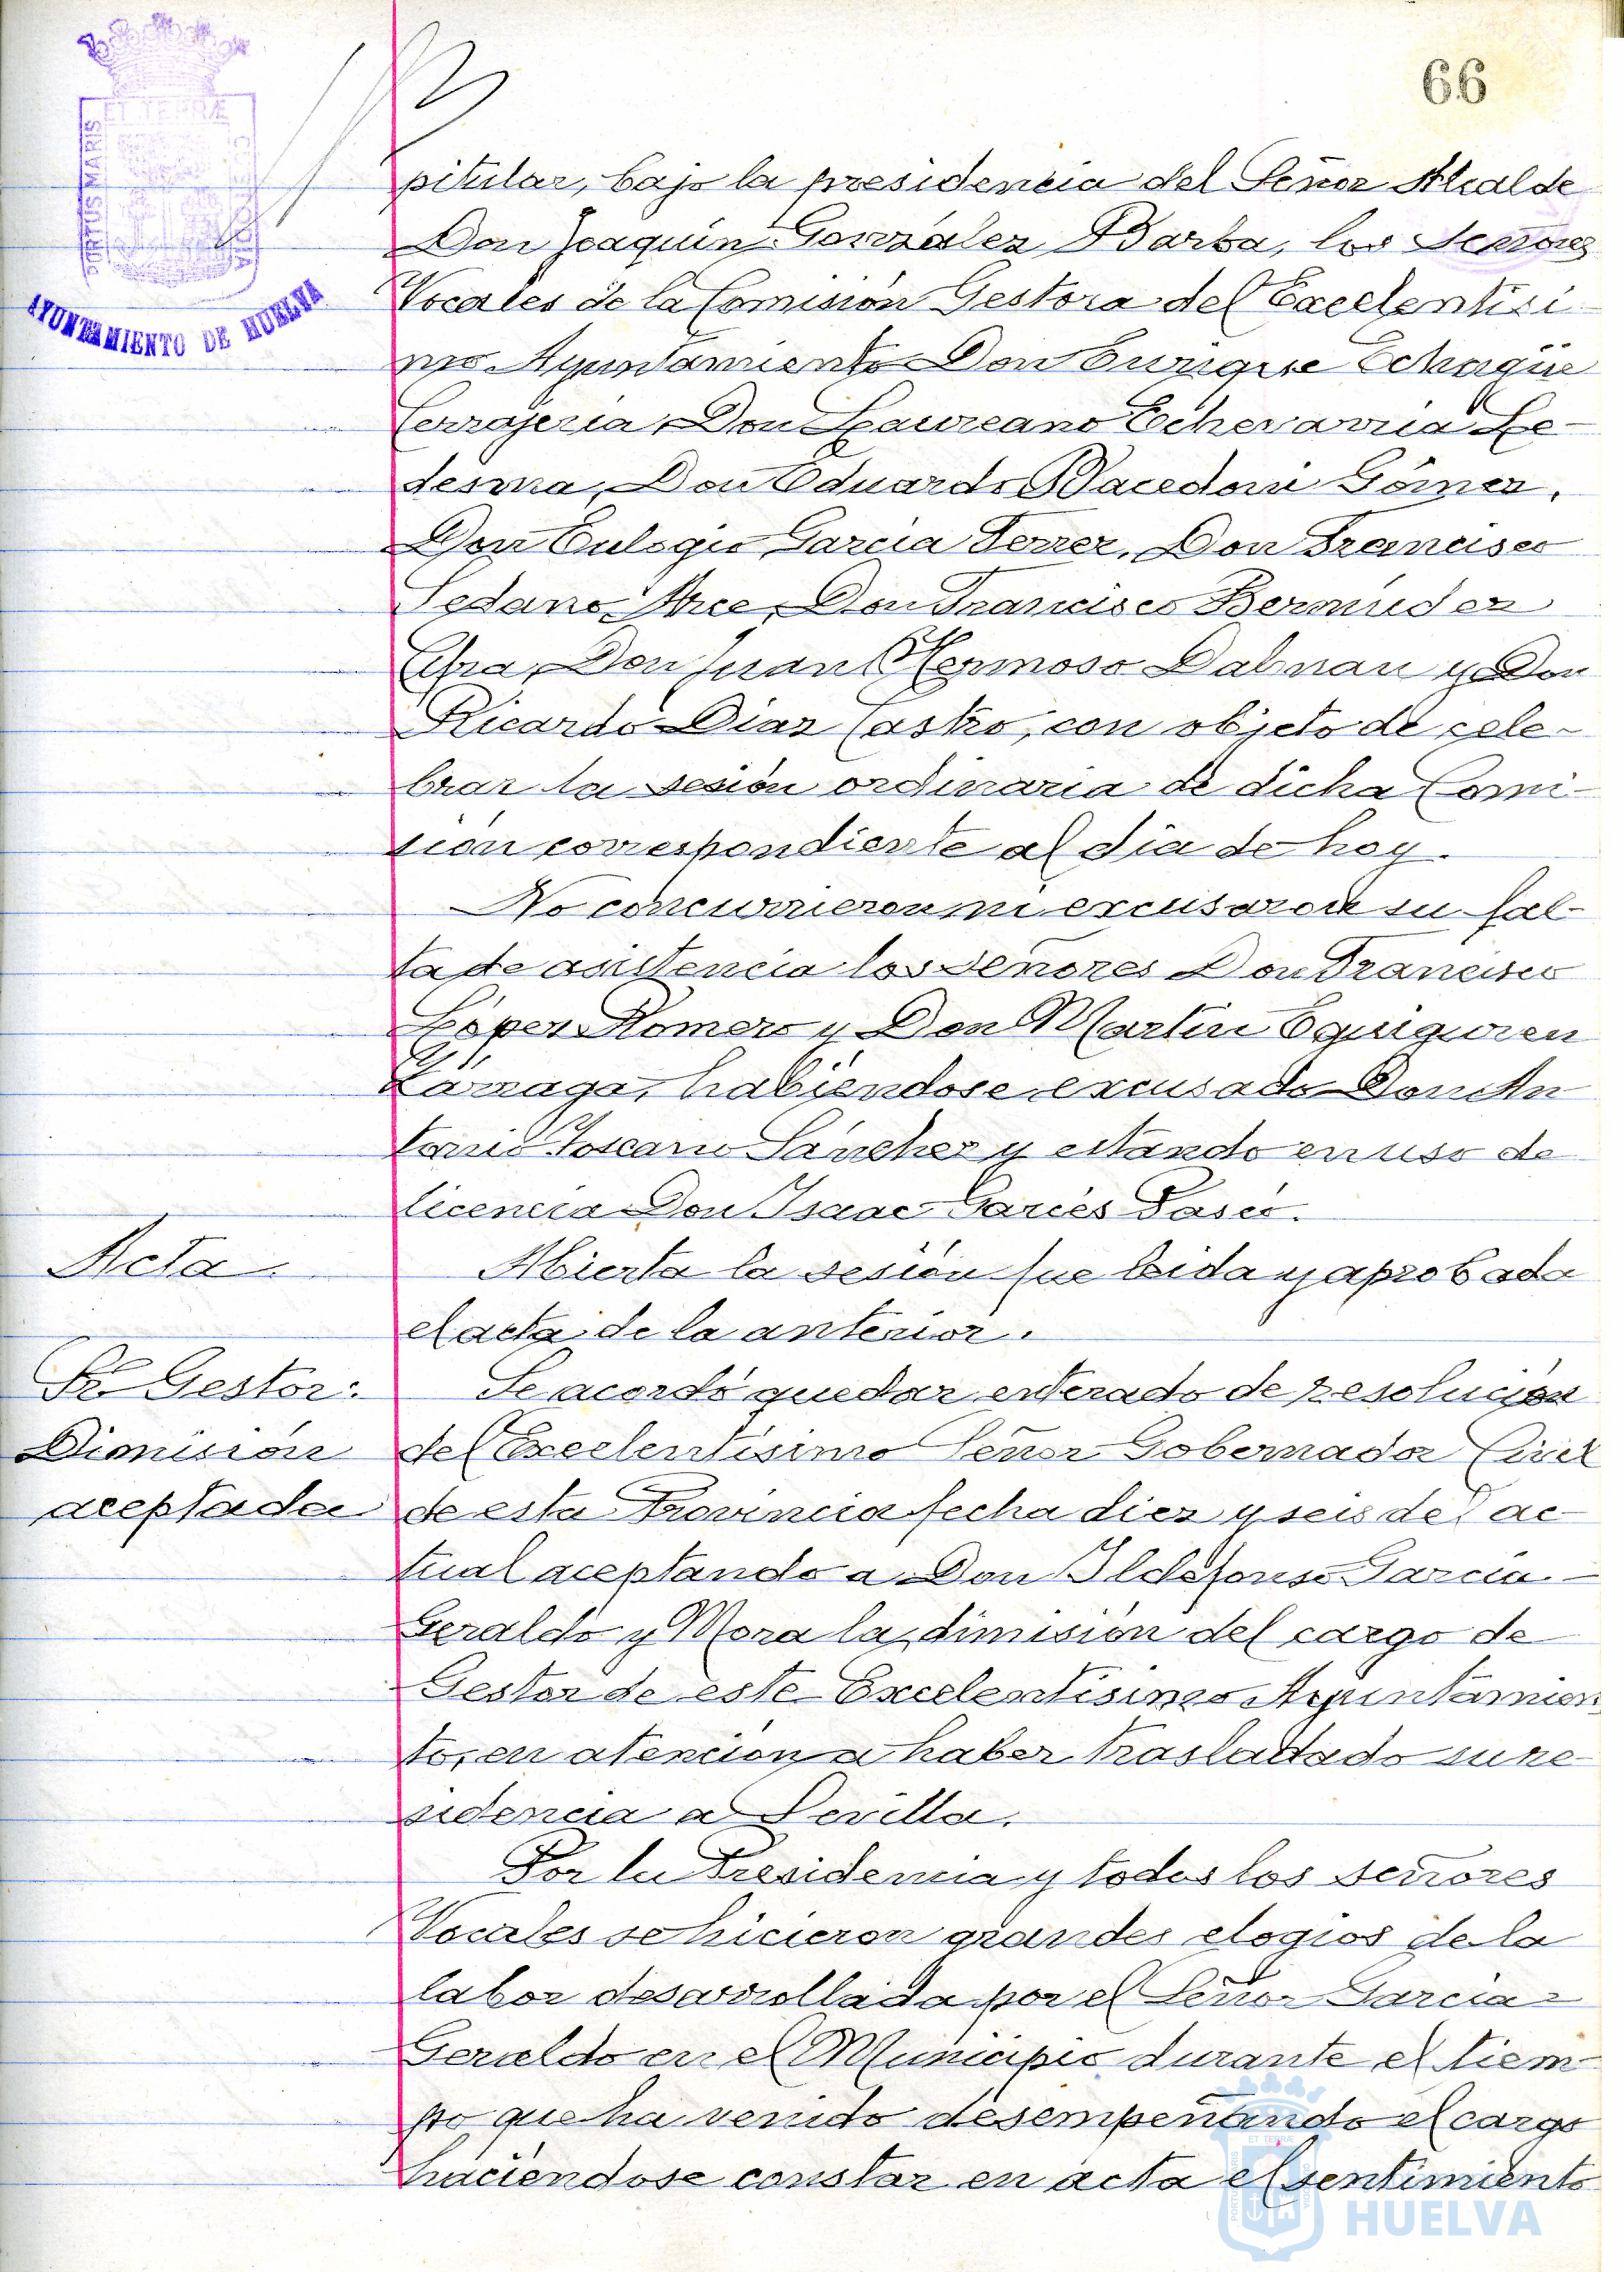 66
PORTUS MARIS
ET TERRÆ
AYUNTAMIENTO DE HUELVA
pitular, bajo la presidencia del Señor Alcalde
Don Joaquín González Barba, los Señores
Vocales de la Comisión Gestora del Excelentísi-
mo Ayuntamiento Don Enrique Echagüe
Cerrajería, Don Laureano Echevarría Le-
desma, Don Eduardo Macedoni Gómez,
Don Eulogio García Ferrer, Don Francisco
Sedano Arce, Don Francisco Bermúdez
Don Juan Hermoso Dalmau y Don
Ricardo Díaz Castro, con objeto de cele-
brar la sesión ordinaria de dicha Comi-
sión correspondiente al día de hoy.
No concurrieron ni excusaron su fal-
ta de asistencia los señores Don Francisco
López Romero y Don Martín Eguiguren
Larraga, habiéndose excusado Don An
tonio Toscano Sánchez y estando en uso de
licencia Don Isaac Garcés
Acta.
Abierta la sesión fue leida y aprobada
el acta de la anterior.
Sr. Gestor:
Dimisión
aceptada
Se acordó quedar enterado de resolución
del Excelentísimo Señor Gobernador Civil
de esta Provincia fecha diez y seis del ac-
tual aceptando a Don Ildefonso García-
Geraldo y Mora la dimisión del cargo de
Gestor de este Excelentísimo Ayuntamien
to, en atención a haber trasladado su re-
sidencia a Sevilla.
Por la Presidencia y todos los señores
Vocales se hicieron grandes elogios de la
labor desarrollada por el Señor García-
Geraldo en el Municipio durante el tiem-
po que ha venido desempeñando el cargo
haciéndose constar en acta el sentimiento
HUELVA